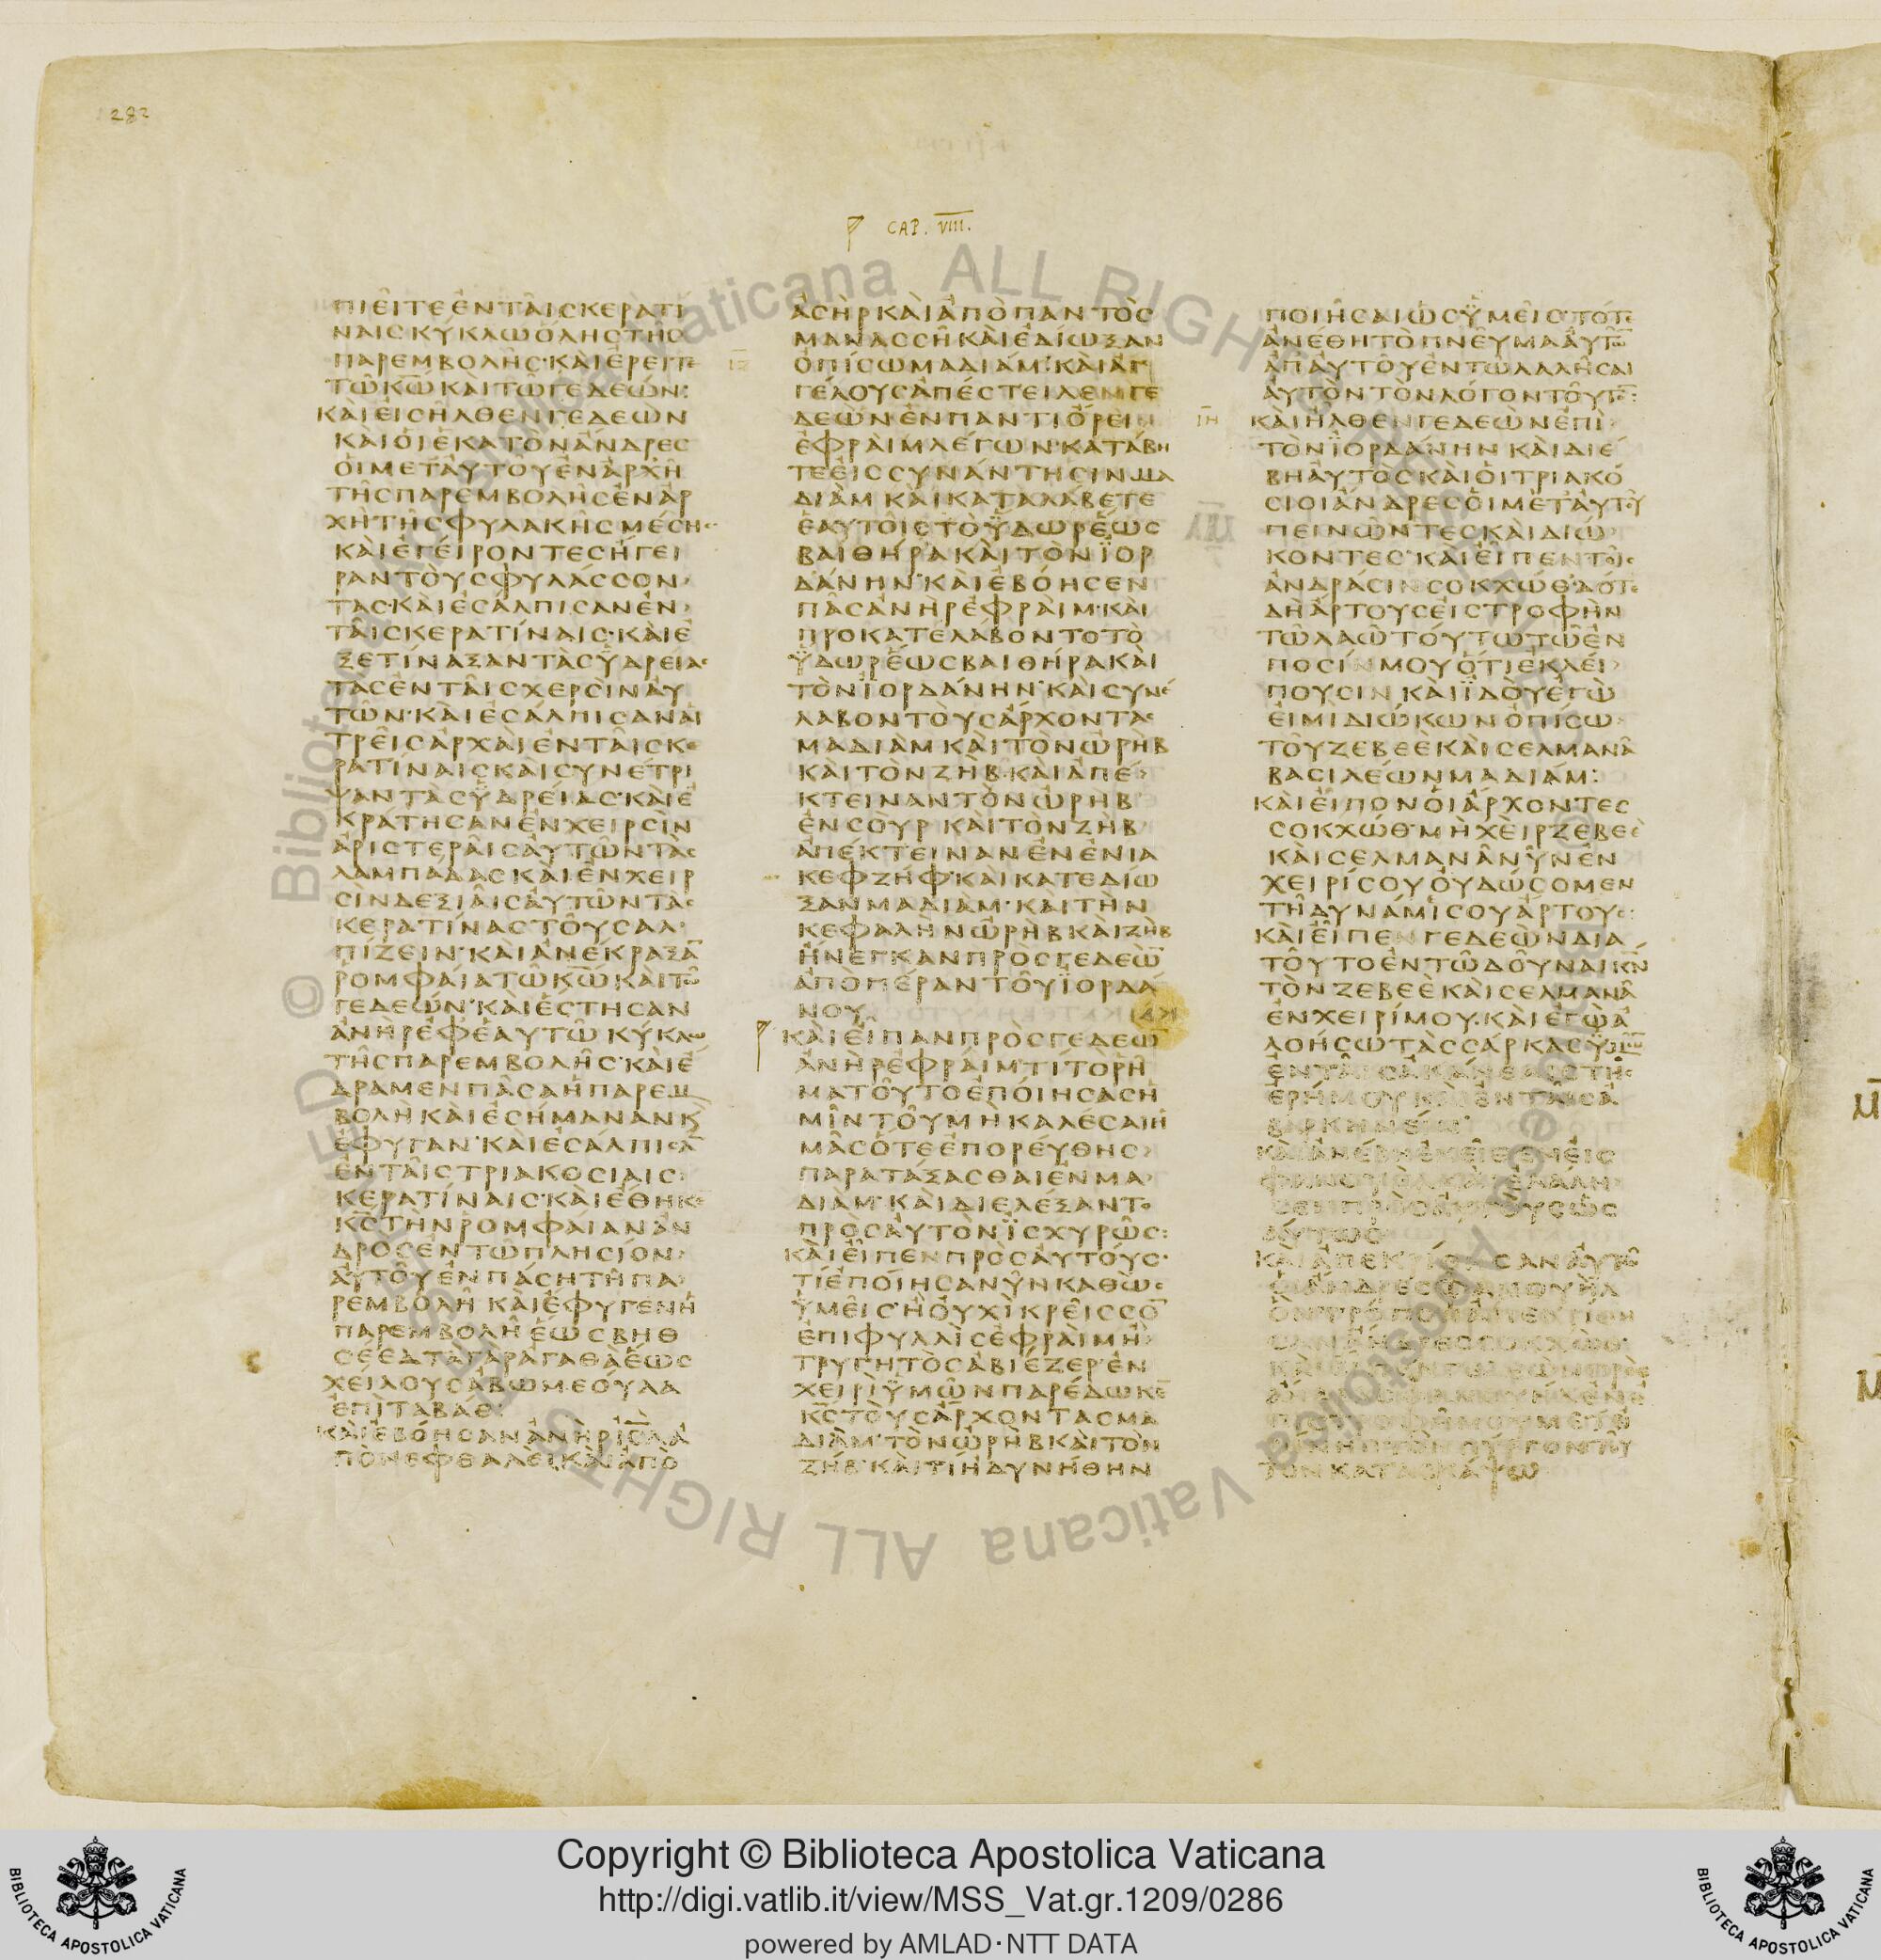 282
CAP. VIII.
ΠΙΕΙΤΕΕΝΤΑΙCΚΕΡΑΤΙ
ΝΑΙCΚΥΚΛΩΟΛΗCΤΗC
ΠΑΡΕΜΒΟΛΗC·ΚΑΙΕΡΕΙΤΕ
ΤΩΚΩΚΑΙΤΩΓΕΔΕΩΝ:
ΚΑΙΕΙCΗΛΘΕΝΓΕΔΕΩΝ
ΚΑΙΟΙΕΚΑΤΟΝΑΝΔΡΕC
ΟΙΜΕΤΑΥΤΟΥΕΝΑΡΧΗ
ΤΗCΠΑΡΕΜΒΟΛΗCΕΝΑΡ
ΧΗΤΗCΦΥΛΑΚΗCΜΕCΗC
ΚΑΙΕΓΕΙΡΟΝΤΕCΗΓΕΙ
ΡΑΝΤΟΥCΦΥΛΑCCΟΝ
ΤΑC·ΚΑΙΕCΑΛΠΙCΑΝΕΝ
ΤΑΙCΚΕΡΑΤΙΝΑΙC·ΚΑΙΕ
ΞΕΤΙΝΑΞΑΝΤΑCΥΔΡΕΙΑC
ΤΑCΕΝΤΑΙCΧΕΡCΙΝΑΥ
ΤΩΝ·ΚΑΙΕCΑΛΠΙCΑΝΑΙ
ΤΡΕΙCΑΡΧΑΙΕΝΤΑΙCΚΕ
ΡΑΤΙΝΑΙCΚΑΙCΥΝΕΤΡΙ
ΨΑΝΤΑCΥΔΡΕΙΑC·ΚΑΙΕ
ΚΡΑΤΗCΑΝΕΝΧΕΙΡCΙΝ
ΑΡΙCΤΕΡΑΙCΑΥΤΩΝΤΑC
ΛΑΜΠΑΔΑCΚΑΙΕΝΧΕΙΡ
CΙΝΔΕΞΙΑΙCΑΥΤΩΝΤΑC
ΚΕΡΑΤΙΝΑCΤΟΥCΑΛ
ΠΙΖΕΙΝ·ΚΑΙΑΝΕΚΡΑΞΑ̅
ΡΟΜΦΑΙΑΤΩΚΩΚΑΙΤΩ
ΓΕΔΕΩΝ·ΚΑΙΕCΤΗCΑΝ
ΑΝΗΡΕΦΕΑΥΤΩΚΥΚΛΩ
ΤΗCΠΑΡΕΜΒΟΛΗC·ΚΑΙΕ
ΔΡΑΜΕΝΠΑCΑΗΠΑΡΕΜ
ΒΟΛΗΚΑΙΕCΗΜΑΝΑΝΚ
ΕΦΥΓΑΝ·ΚΑΙΕCΑΛΠΙCΑ̅
ΕΝΤΑΙCΤΡΙΑΚΟCΙΑΙC
ΚΕΡΑΤΙΝΑΙC·ΚΑΙΕΘΗΚΕ
ΚC̅ΤΗΝΡΟΜΦΑΙΑΝΑΝ
ΔΡΟCΕΝΤΩΠΛΗCΙΟΝ
ΑΥΤΟΥΕΝΠΑCΗΤΗΠΑ
ΡΕΜΒΟΛΗΚΑΙΕΦΥΓΕΝΗ
ΠΑΡΕΜΒΟΛΗΕΩCΒΗΘ
CΕΕΔΤΑΓΑΡΑΓΑΘΑΕΩC
ΧΕΙΛΟΥCΑΒΩΜΕΟΥΛΑ
ΕΠΙΤΑΒΑΘ:
ΚΑΙΕΒΟΗCΑΝΑΝΗΡΙC̅Λ̅Α
ΠΟΝΕΦΘΑΛΕΙΚΑΙΑΠΟ
ΑCΗΡΚΑΙΑΠΟΠΑΝΤΟC
ΜΑΝΑCCΗΚΑΙΕΔΙΩΞΑΝ
ΟΠΙCΩΜΑΔΙΑΜ:ΚΑΙΑΓ
ΓΕΛΟΥCΑΠΕCΤΕΙΛΕΝΓΕ
ΔΕΩΝ·ΕΝΠΑΝΤΙΟΡΕΙ
ΕΦΡΑΙΜΛΕΓΩΝ·ΚΑΤΑΒΗ
ΤΕΕΙCCΥΝΑΝΤΗCΙΝΜΑ
ΔΙΑΜΚΑΙΚΑΤΑΛΑΒΕΤΕ
ΕΑΥΤΟΙCΤΟΫΔΩΡΕΩC
ΒΑΙΘΗΡΑΚΑΙΤΟΝΪΟΡ
ΔΑΝΗΝ·ΚΑΙΕΒΟΗCΕΝ
ΠΑCΑΝΗΡΕΦΡΑΙΜ·ΚΑΙ
ΠΡΟΚΑΤΕΛΑΒΟΝΤΟΤΟ
ΫΔΩΡΕΩCΒΑΙΘΗΡΑΚΑΙ
ΤΟΝΪΟΡΔΑΝΗΝ·ΚΑΙCΥΝΕ
ΛΑΒΟΝΤΟΥCΑΡΧΟΝΤΑC
ΜΑΔΙΑΜΚΑΙΤΟΝΩΡΗΒ
ΚΑΙΤΟΝΖΗΒ·ΚΑΙΑΠΕ
ΚΤΕΙΝΑΝΤΟΝΩΡΗΒ
ΕΝCΟΥΡΚΑΙΤΟΝΖΗΒ
ΑΠΕΚΤΕΙΝΑΝΕΝΕΝΙΑ
ΚΕΦΖΗΦ·ΚΑΙΚΑΤΕΔΙΩ
ΞΑΝΜΑΔΙΑΜ·ΚΑΙΤΗΝ
ΚΕΦΑΛΗΝΩΡΗΒΚΑΙΖΗΒ
ΗΝΕΓΚΑΝΠΡΟCΓΕΔΕΩ̅
ΑΠΟΠΕΡΑΝΤΟΥΪΟΡΔΑ
ΝΟΥ
ΚΑΙΕΙΠΑΝΠΡΟCΓΕΔΕΩ̅
ΑΝΗΡΕΦΡΑΙΜ·ΤΙΤΟΡΗ
ΜΑΤΟΥΤΟΕΠΟΙΗCΑCΗ
ΜΙΝΤΟΥΜΗΚΑΛΕCΑΙΗ
ΜΑCΟΤΕΕΠΟΡΕΥΘΗC
ΠΑΡΑΤΑΞΑCΘΑΙΕΝΜΑ
ΔΙΑΜ·ΚΑΙΔΙΕΛΕΞΑΝΤΟ
ΠΡΟCΑΥΤΟΝΪCΧΥΡΩC:
ΚΑΙΕΙΠΕΝΠΡΟCΑΥΤΟΥC·
ΤΙΕΠΟΙΗCΑΝΥΝΚΑΘΩC
ΥΜΕΙCΗΟΥΧΙΚΡΕΙCCΟ̅
ΕΠΙΦΥΛΛΙCΕΦΡΑΙΜΗ
ΤΡΥΓΗΤΟCΑΒΙΕΖΕΡ·ΕΝ
ΧΕΙΡΙΫΜΩΝΠΑΡΕΔΩΚΕ̅
ΚC̅ΤΟΥCΑΡΧΟΝΤΑCΜΑ
ΔΙΑΜ·ΤΟΝΩΡΗΒΚΑΙΤΟΝ
ΖΗΒ·ΚΑΙΤΙΗΔΥΝΗΘΗΝ
ΠΟΙΗCΑΙΩCΫΜΕΙC·ΤΟΤΕ
ΑΝΕΘΗΤΟΠΝΕΥΜΑΑΥΤΩ̅
ΑΠΑΥΤΟΥΕΝΤΩΛΑΛΗCΑΙ
ΑΥΤΟΝΤΟΝΛΟΓΟΝΤΟΥΤΟ̅:
ΙΗ
ΚΑΙΗΛΘΕΝΓΕΔΕΩΝΕΠΙ
ΤΟΝΪΟΡΔΑΝΗΝΚΑΙΔΙΕ
ΒΗΑΥΤΟCΚΑΙΟΙΤΡΙΑΚΟ
CΙΟΙΑΝΔΡΕCΟΙΜΕΤΑΥΤΟΥ
ΠΕΙΝΩΝΤΕCΚΑΙΔΙΩ
ΚΟΝΤΕC·ΚΑΙΕΙΠΕΝΤΟΙC
ΑΝΔΡΑCΙΝCΟΚΧΩΘ·ΔΟΤΕ
ΔΗΑΡΤΟΥCΕΙCΤΡΟΦΗΝ
ΤΩΛΑΩΤΟΥΤΩΤΩΕΝ
ΠΟCΙΝΜΟΥΟΤΙΕΚΛΕΙ
ΠΟΥCΙΝΚΑΙΪΔΟΥΕΓΩ
ΕΙΜΙΔΙΩΚΩΝΟΠΙCΩ
ΤΟΥΖΕΒΕΕΚΑΙCΕΛΜΑΝΑ
ΒΑCΙΛΕΩΝΜΑΔΙΑΜ:
ΚΑΙΕΙΠΟΝΟΙΑΡΧΟΝΤΕC
CΟΚΧΩΘ·ΜΗΧΕΙΡΖΕΒΕΕ
ΚΑΙCΕΛΜΑΝΑΝΥΝΕΝ
ΧΕΙΡΙCΟΥΟΥΔΩCΟΜΕΝ
ΤΗΔΥΝΑΜΙCΟΥΑΡΤΟΥC:
ΚΑΙΕΙΠΕΝΓΕΔΕΩΝΔΙΑ
ΤΟΥΤΟΕΝΤΩΔΟΥΝΑΙΚΝ
ΤΟΝΖΕΒΕΕΚΑΙCΕΛΜΑΝΑ
ΕΝΧΕΙΡΙΜΟΥ·ΚΑΙΕΓΩΑ
ΛΟΗCΩΤΑCCΑΡΚΑCΫΜΩ̅
ΕΝΤΑΙCΑΚΑΝΘΑΙCΤΗC
ΕΡΗΜΟΥΚΑΙΕΝΤΑΙCΑ
ΒΑΡΚΗΝΕΙΝ
ΤΟΝΚΑΤΑCΚΑΨΩ
Copyright © Biblioteca Apostolica Vaticana
http://digi.vatlib.it/view/MSS_Vat.gr.1209/0286
powered by AMLAD·NTT DATA
BIBLIOTECA APOSTOLICA VATICANA
BIBLIOTECA APOSTOLICA VATICANA